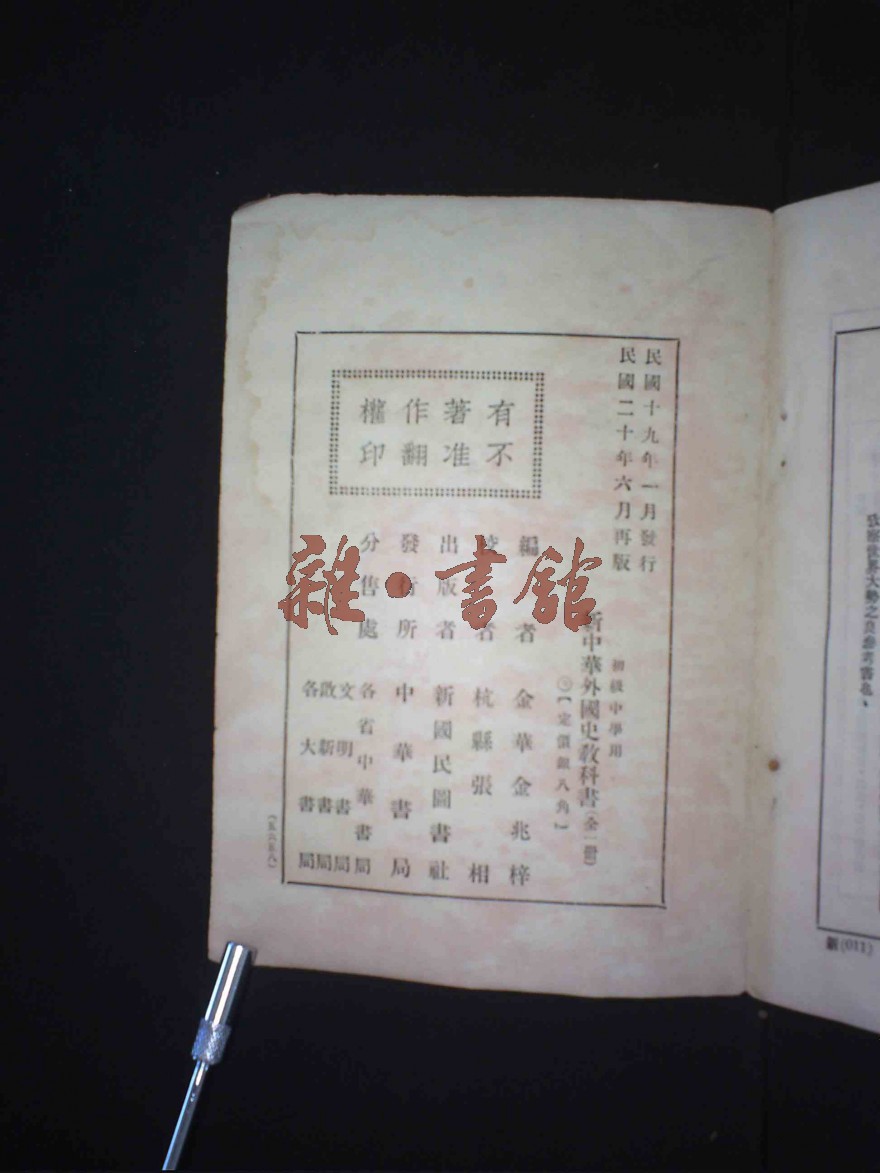 民國十九年一月發行
民國二十年六月再版
初級中學用
新中華外國史教科書（全一册）
【定價銀八角】
編者 金華金兆梓
校者 杭縣張相
出版者 新國民圖書社
發行所 中華書局
分售處 各省中華書局
文明書局
啟新書局
各大書局
有著作權
不准翻印
雜·書館
（五六五八）
世界大勢之良參考書也、
(011)